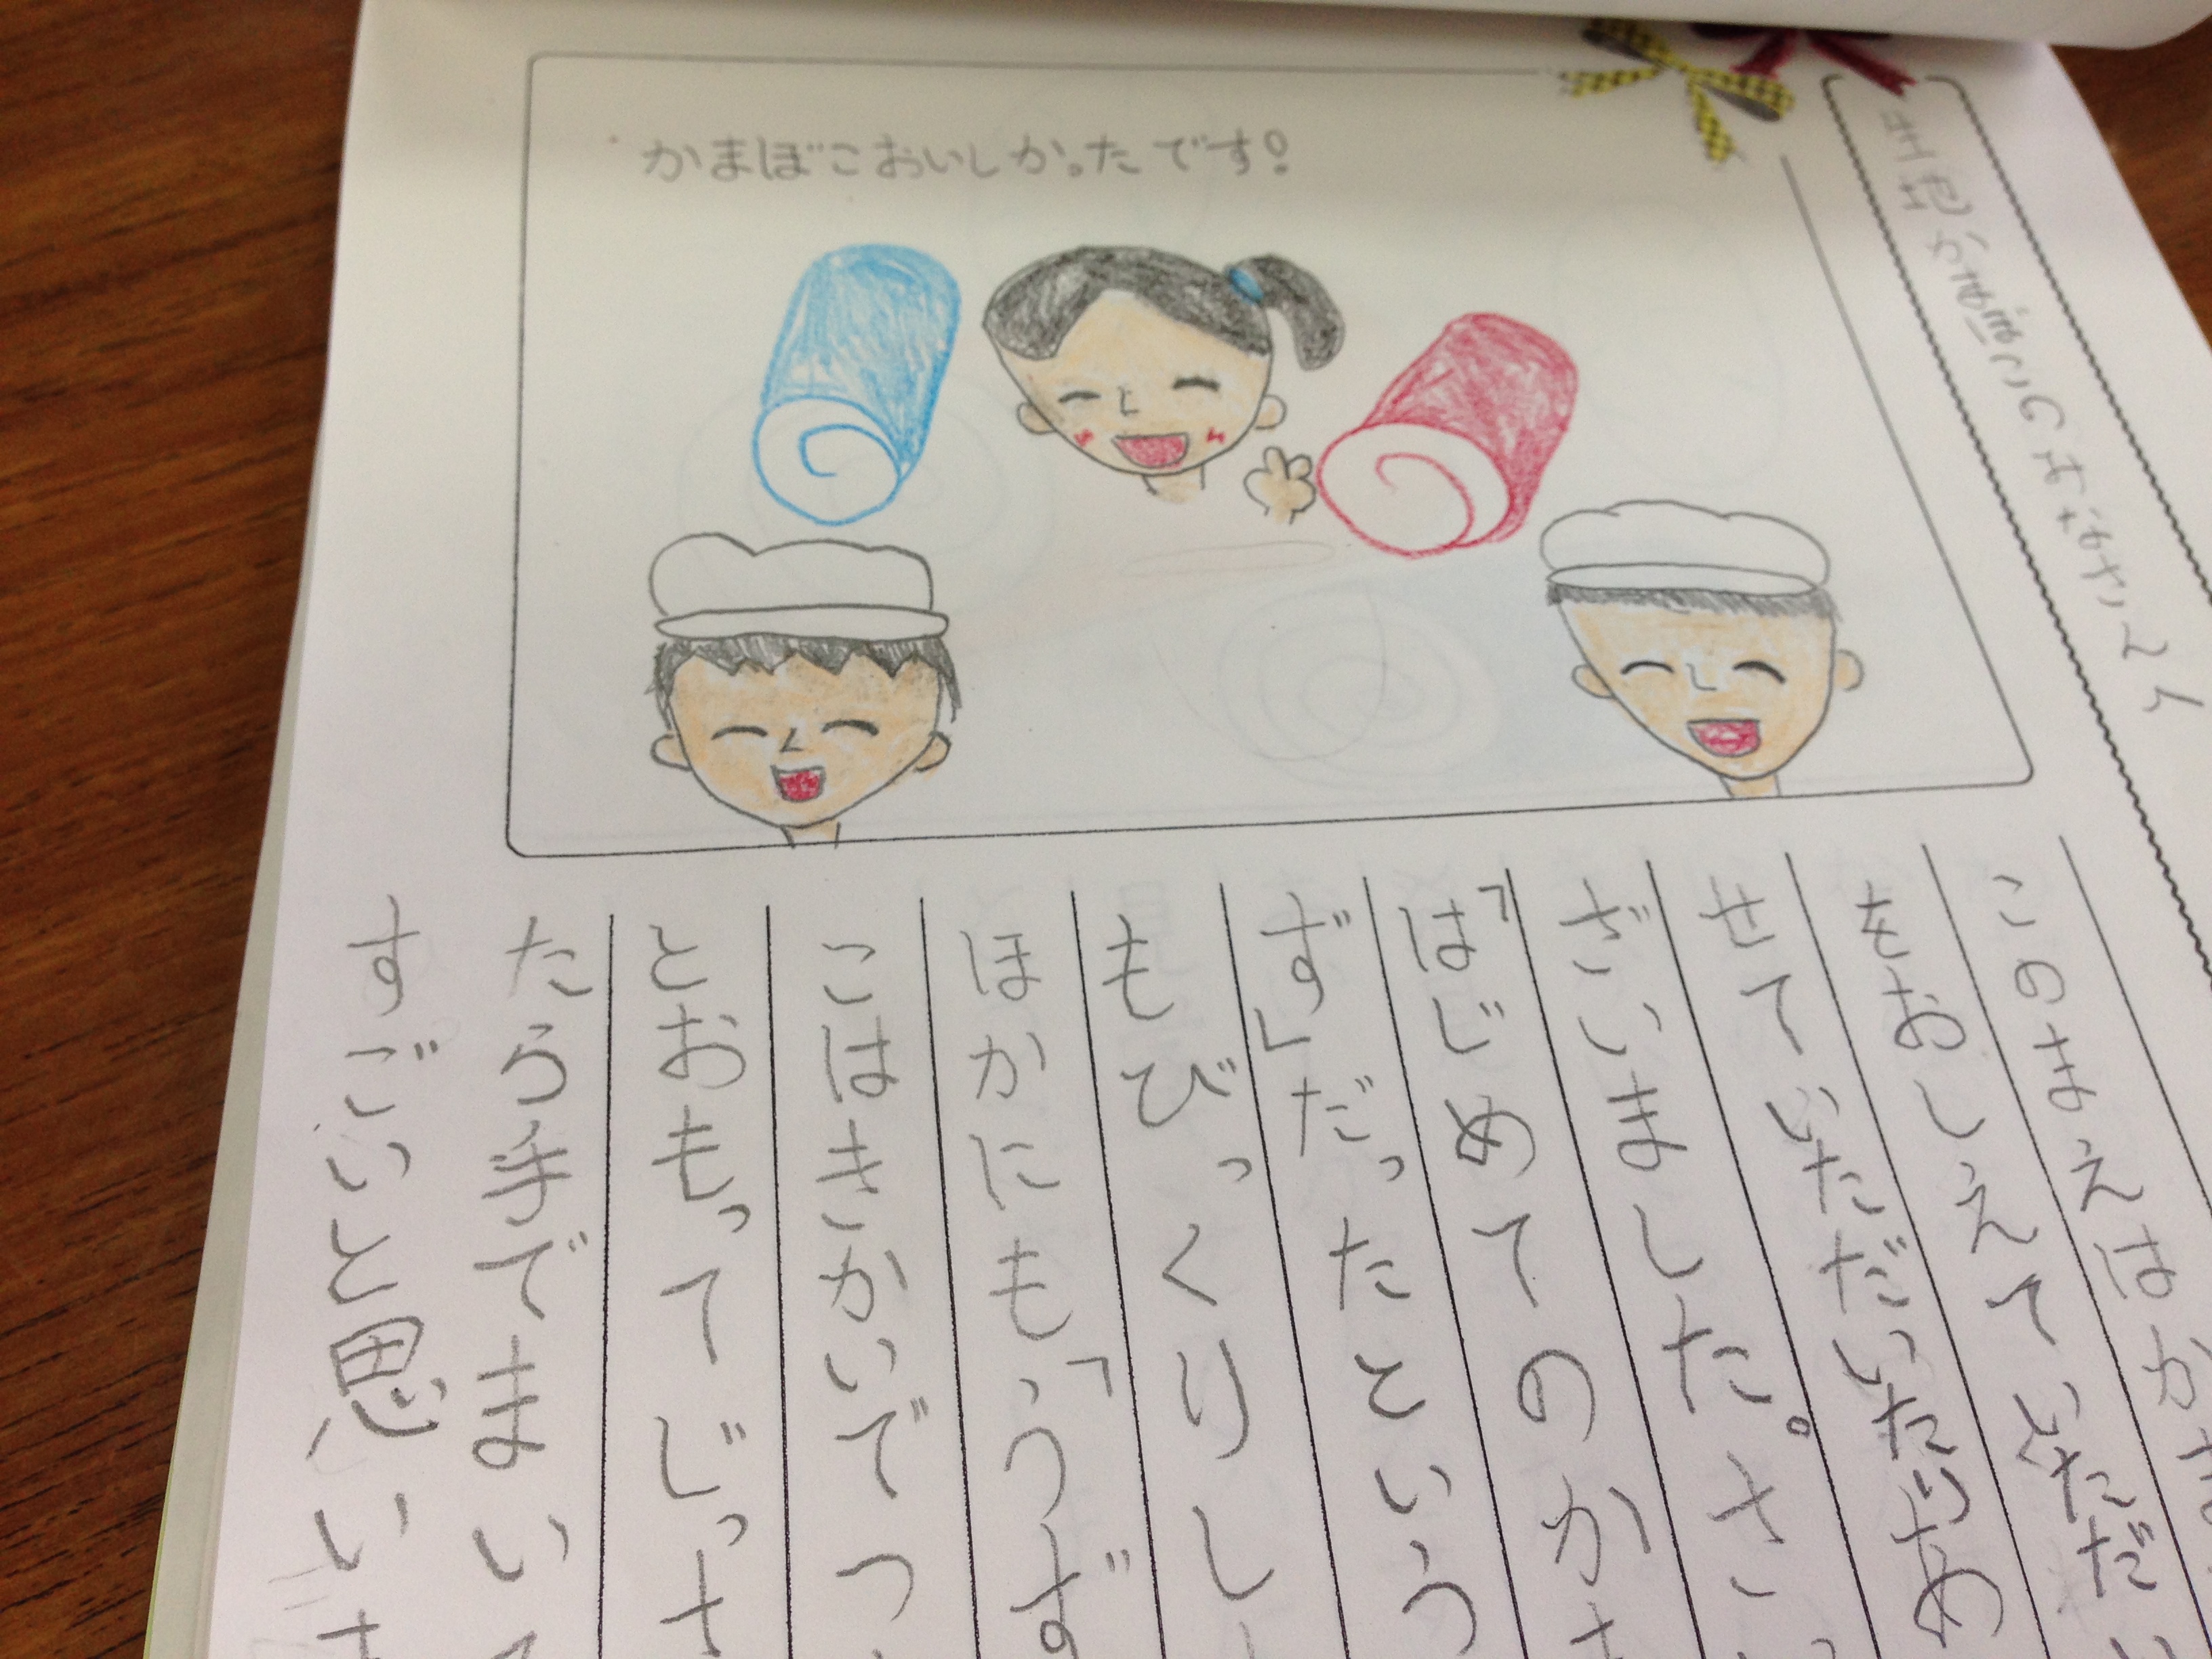 かまぼこおいしかったです!
このまえはか
をおしえていただい
せていただいたりあ
ざいました。さ
「はじめてのか
ず」だったという
もびっくりし
ほかにも「うず
こはきかいでつ
とおもってじっ
たら手でまい
すごいと思い